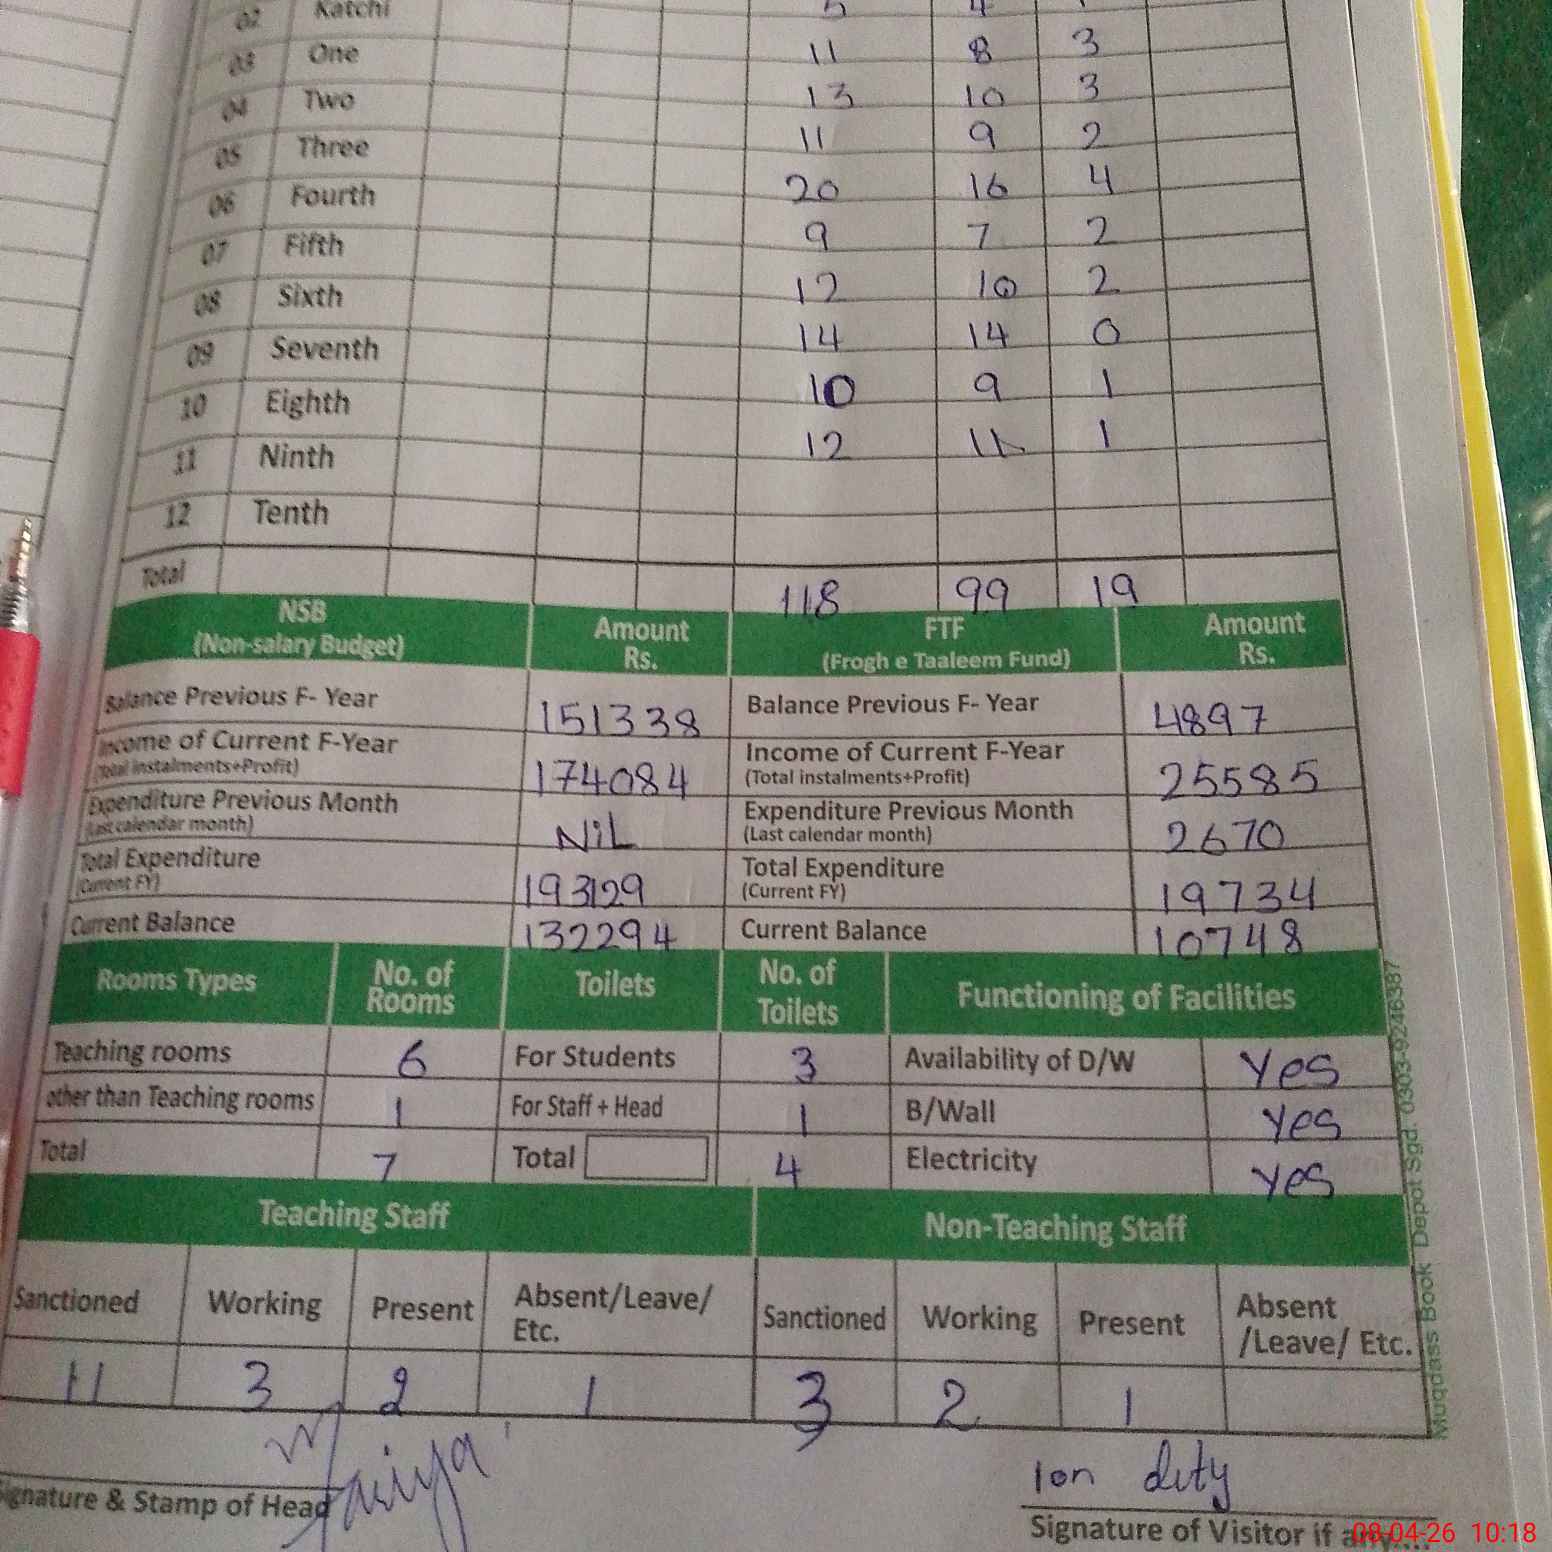 02 Katchi 5 4
03 One 11 8 3
04 Two 13 10 3
05 Three 11 9 2
06 Fourth 20 16 4
07 Fifth 9 7 2
08 Sixth 12 10 2
09 Seventh 14 14 0
10 Eighth 10 9 1
11 Ninth 12 11 1
12 Tenth
Total 118 99 19
NSB (Non-salary Budget) Amount Rs. FTF (Frogh e Taaleem Fund) Amount Rs.
Balance Previous F- Year 151338 Balance Previous F- Year 4897
Income of Current F-Year (Total instalments+Profit) 174084 Income of Current F-Year (Total instalments+Profit) 25585
Expenditure Previous Month (Last calendar month) NiL Expenditure Previous Month (Last calendar month) 2670
Total Expenditure (Current FY) 193129 Total Expenditure (Current FY) 19734
Current Balance 132294 Current Balance 10748
Rooms Types No. of Rooms Toilets No. of Toilets Functioning of Facilities
Teaching rooms 6 For Students 3 Availability of D/W Yes
other than Teaching rooms 1 For Staff + Head 1 B/Wall Yes
Total 7 Total 4 Electricity Yes
Teaching Staff Non-Teaching Staff
Sanctioned Working Present Absent/Leave/ Etc. Sanctioned Working Present Absent /Leave/ Etc.
11 3 2 1 3 2 1
1 on duty
Signature & Stamp of Head Signature of Visitor if any....
Muqdass Book Depot Sgd. 0303-9246387
08-04-26 10:18